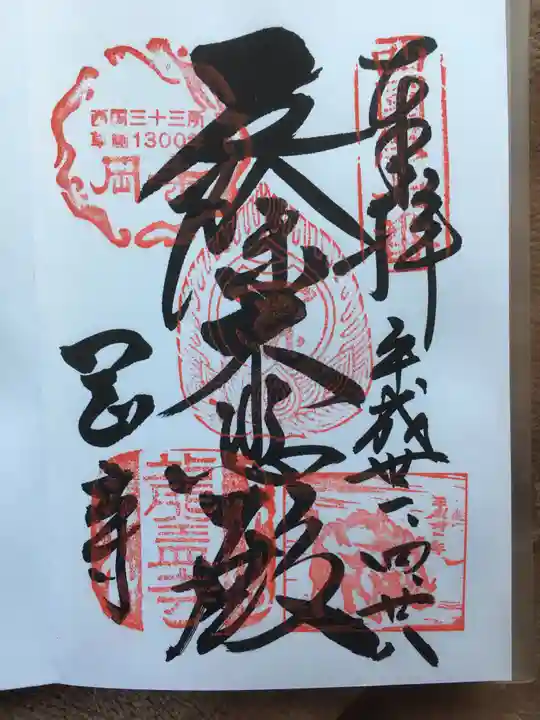 奉拝
平成卅一、四、廿八
大悲殿
岡寺
西国三十三所
草創1300年
岡寺
龍蓋寺